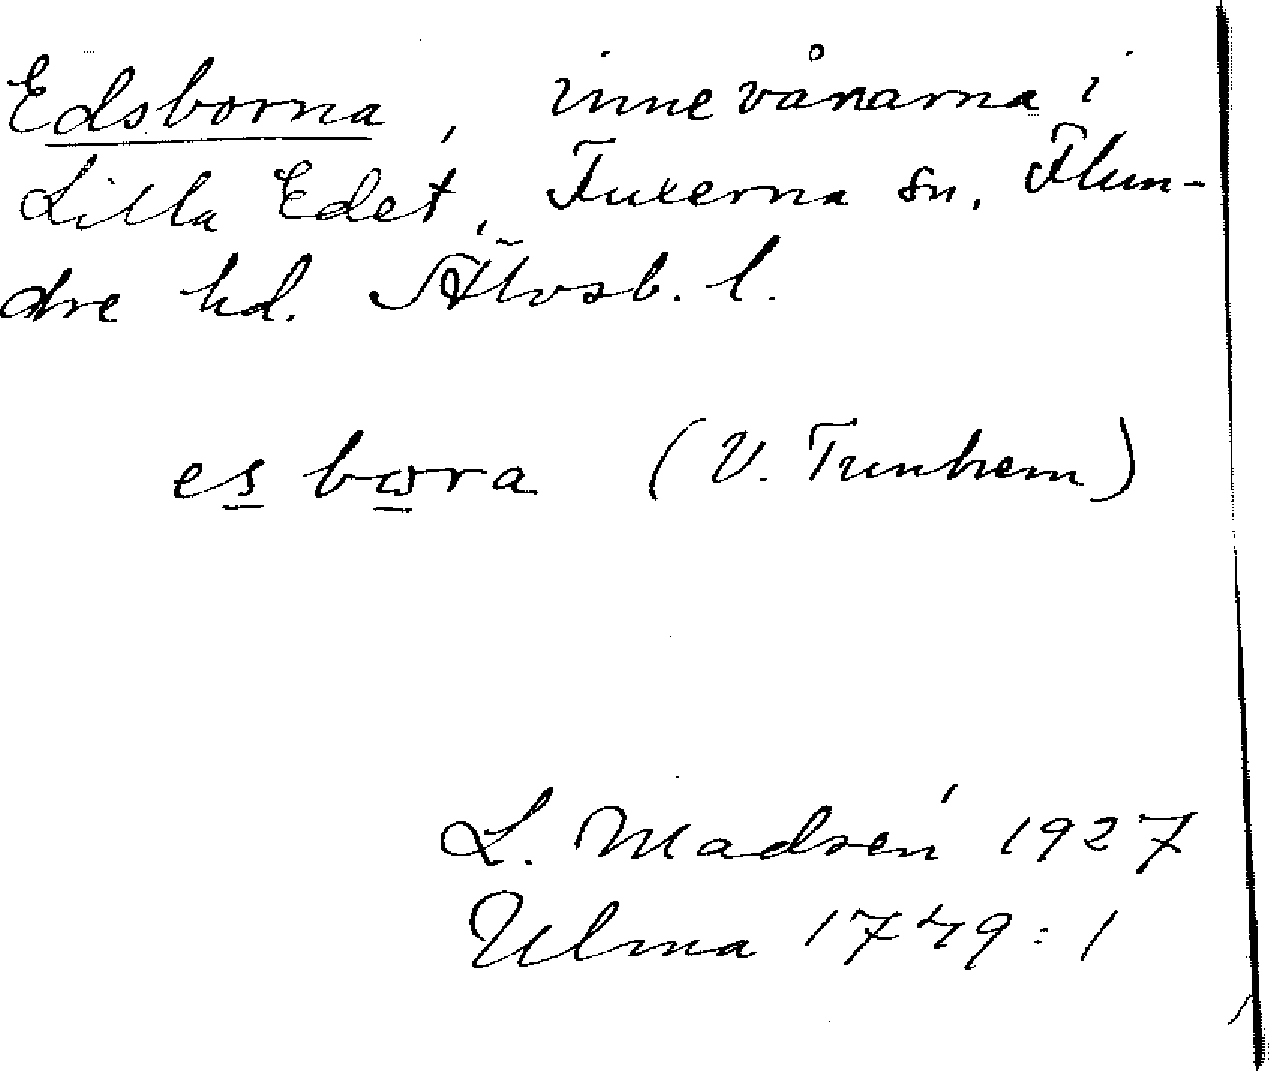 Edsborna, innevånarna i
Lilla Edet, Fuxerna sn, Flun-
dre hd. Älvsb. l.
es bωra (V. Tunhem)
L. Madsén 1927
Ulma 1749:1